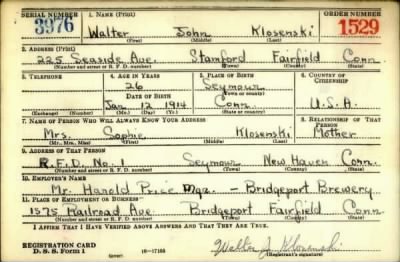 SERIAL NUMBER 1. NAME (Print) ORDER NUMBER
3976 Walter John Klosenski 1529
(First) (Middle) (Last)
2. ADDRESS (Print)
225 Seaside Ave. Stamford Fairfield Conn.
(Number and street or R. F. D. number) (Town) (County) (State)
3. TELEPHONE 4. AGE IN YEARS 5. PLACE OF BIRTH 6. COUNTRY OF CITIZENSHIP
26 Seymour
DATE OF BIRTH (Town or county)
Jan. 12 1914 Conn. U.S.A.
(Exchange) (Number) (Mo.) (Day) (Yr.) (State or country)
7. NAME OF PERSON WHO WILL ALWAYS KNOW YOUR ADDRESS 8. RELATIONSHIP OF THAT PERSON
Mrs. Sophie Klosenski Mother
(Mr., Mrs., Miss) (First) (Middle) (Last)
9. ADDRESS OF THAT PERSON
R.F.D. No. 1 Seymour New Haven Conn.
(Number and street or R. F. D. number) (Town) (County) (State)
10. EMPLOYER'S NAME
Mr. Harold Price Mgr. - Bridgeport Brewery
11. PLACE OF EMPLOYMENT OR BUSINESS
1575 Railroad Ave. Bridgeport Fairfield Conn.
(Number and street or R. F. D. number) (Town) (County) (State)
I AFFIRM THAT I HAVE VERIFIED ABOVE ANSWERS AND THAT THEY ARE TRUE.
REGISTRATION CARD
D. S. S. Form 1 16-17105 Walter J. Klosenski
(Registrant's signature)